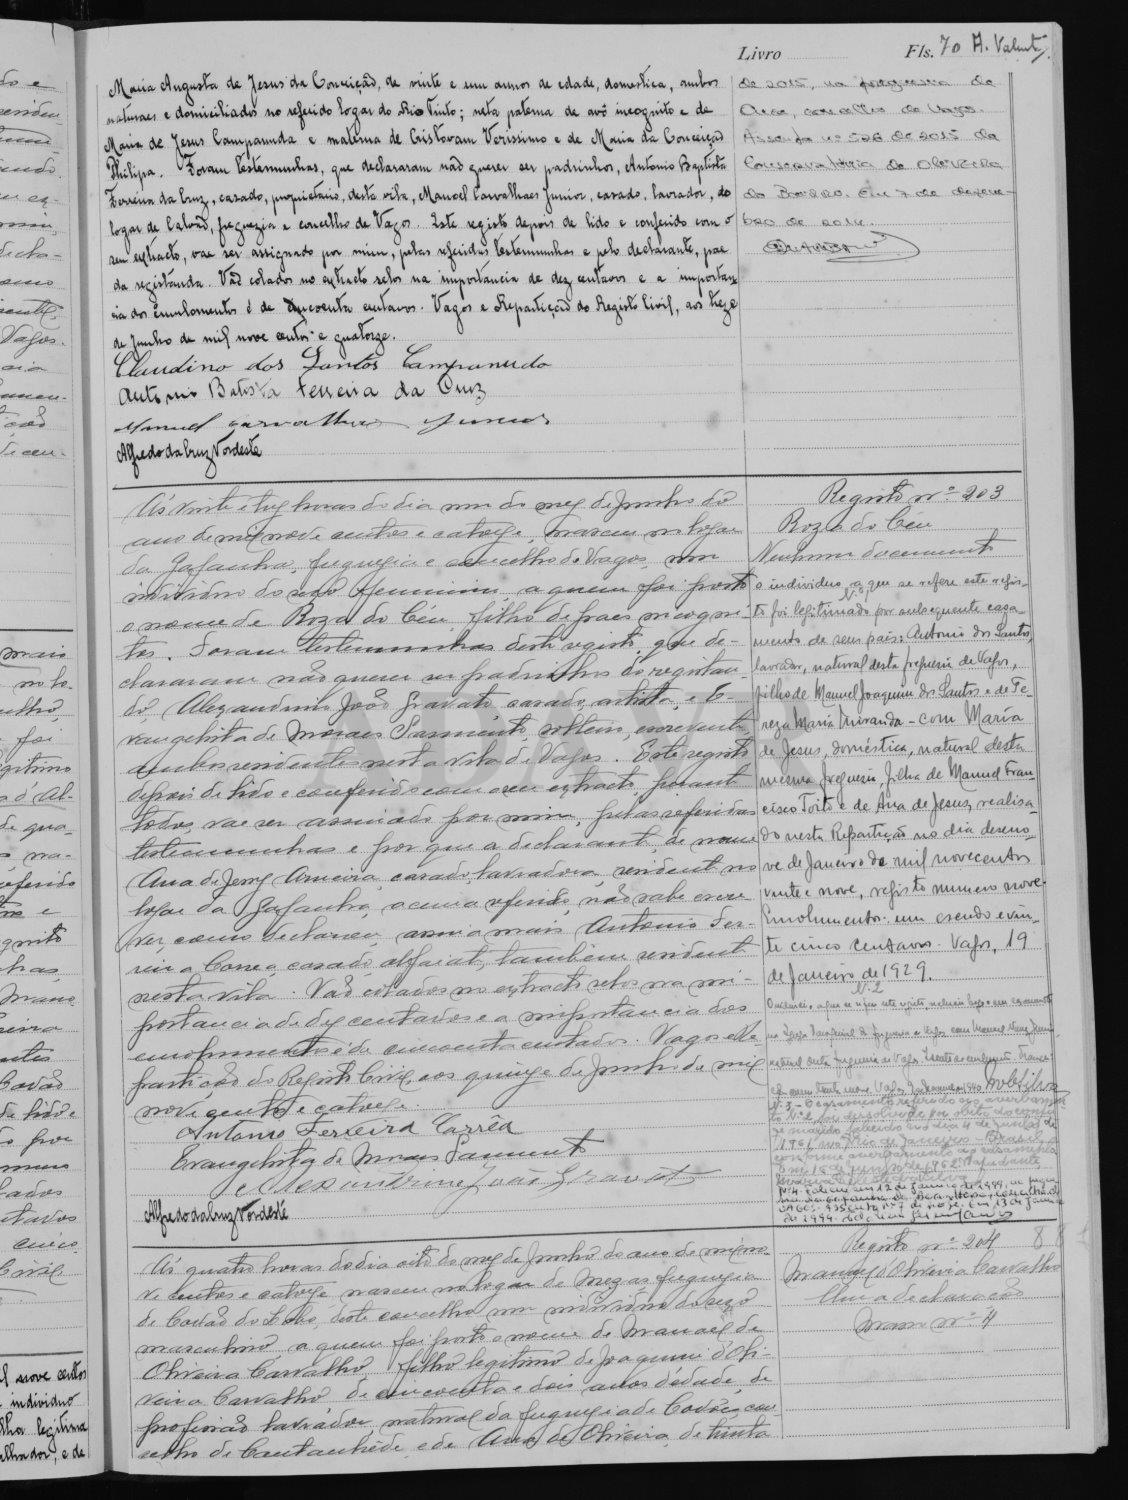 Livro Fls. 70 A. Valent
Maria Augusta de Jesus da Conceição, de vinte e um annos de edade, domestica, ambos
naturaes e domiciliados no referido logar do Rio Tinto; neta paterna de avô incognito e de
Maria de Jesus Campanuda e materna de Cristovam Verissimo e de Maria da Conceiçaõ
Philipa. Foram testemunhas, que declararam não querer ser padrinhos, Antonio Baptista
Ferreira da Cruz, casado, proprietario, desta vila, Manoel Carvalhaes Junior, casado, lavrador, do
logar de Calvaõ, freguezia e concelho de Vagos. Este registo depois de lido e conferido com o
seu extracto, vae ser assignado por mim, pelas referidas testemunhas e pelo declarante, pae
da registanda. Vaõ colados no extracto selos na importancia de dez centavos e a importan
cia dos emolumentos é de cincoenta centavos. Vagos e Repartiçaõ do Registo Civil, aos treze
de Junho de mil nove centos e quatorze.
Claudino dos Santos Campanudo
Antonio Batista Ferreira da Cruz
Manuel Carvalhaes Junior
Alfredo da Cruz Nordeste
de 2015, na freguesia de
concelho de Vagos.
Assento nº 526 de 2015 da
Conservatória de Oliveira
do Bairro. Em 7 de dezem-
bro de
Ás vinte e tres horas do dia um do mez de Junho do
anno de mil nove centos e catorze, nasceu no logar
da Gafanha, freguezia e concelho de Vagos, um
individuo do sexo femenino, a quem foi posto
o nome de Roza do Céu, filho de paes incogni-
tos. Foram testemunhas deste registo, que de-
clararam não querer ser padrinhos do registan-
do, Alexandrino João Gravato, casado, artista, e E-
vangelista de Moraes Sarmento, solteiro, escrevente,
ambos residentes nesta vila de Vagos. Este registo
depois de lido e conferido com o seu extracto, perante
todos, vae ser assinado por mim, pelas referidas
testemunhas e por que a declarante, de nome
Ana de Jesus Arneira, casada, lavradora, residente no
logar da Gafanha, acima referido, não sabe escre
ver, como declarou, assina mais Antonio Fer-
reira Correa, casado, alfaiate, tambem residente
nesta vila. Vaõ colados no extracto selos na im-
portancia de dez centavos e a importancia dos
emolumentos é de cincoenta centavos. Vagos e Re
partição do Registo Civil, aos quinze de Junho de mil
nove centos e catorze.
Antonio Ferreira Corrêa
Evangelista de Moraes Sarmento
Alexandrino João Gravato
Alfredo da Cruz Nordeste
Registo nº 203
Roza do Céu
Nenhum documento
Nº 1
O individuo a que se refere este regis-
to foi legitimado por subsequente casa-
mento de seus pais: Antonio dos Santos,
lavrador, natural desta freguesia de Vagos,
filho de Manuel Joaquim dos Santos e de Te-
reza Maria Miranda - com Maria
de Jesus, doméstica, natural desta
mesma freguesia, filha de Manuel Fran-
cisco Toito e de Ana de Jesus, realisa-
do nesta Repartição no dia deseno-
ve de Janeiro de mil novecentos
vinte e nove, registo numero nove.
Emolumentos: um escudo e vin-
te cinco centavos. Vagos, 19
de Janeiro de 1929.
Nº 2
Nº 3 - O casamento referido no averbamen-
to Nº 2 foi dissolvido por obito do conju-
ge marido falecido no dia 4 de Junho de
1961 no Rio de Janeiro - Brasil,
conforme averbamento ao casamento
Em 18 de Junho de 1962. O ajudante,
Nº 4 - Faleceu em 12 de Janeiro de 1999, na fregue-
sia da Gafanha da Boa Hora, concelho de
Vagos. Assento nº 7 Em 13 de Janeiro
de 1999.
Ás quatro horas do dia oito do mez de Junho do anno de mil no
ve centos e catorze, nasceu no logar de Mezas, freguezia
de Covão do Lobo, deste concelho, um individuo do sexo
masculino, a quem foi posto o nome de Manoel de
Oliveira Carvalho, filho legitimo de Joaquim d'Oli-
veira Carvalho, de cincoenta e dois anos dedade, de
profissão lavrador, natural da freguezia de Covões, con
celho de Cantanhede, e de Ana de Oliveira, de trinta
Registo nº 204
Manoel d'Oliveira Carvalho
Uma declaração
Maço nº 4